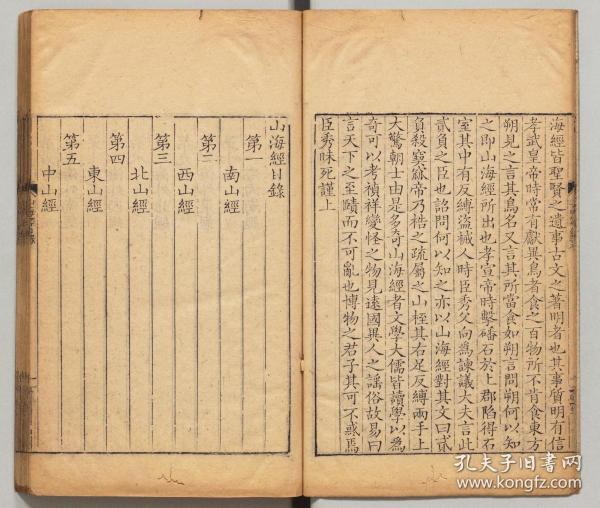 海經皆聖賢之遺事古文之著明者也其事質明有信
孝武皇帝時常有獻異鳥者食之百物所不肯食東方
朔見之言其鳥名又言其所當食如朔言問朔何以知
之即山海經所出也孝宣帝時擊磻石於上郡陷得石
室其中有反縛盜械人時臣秀父向為諫議大夫言此
貳負之臣也詔問何以知之亦以山海經對其文曰貳
負殺窫窳帝乃梏之疏屬之山桎其右足反縛兩手上
大驚朝士由是多奇山海經者文學大儒皆讀學以為
奇可以考禎祥變怪之物見遠國異人之謡俗故易曰
言天下之至賾而不可亂也博物之君子其可不惑焉
臣秀昧死謹上
山海經目錄
第一
南山經
第二
西山經
第三
北山經
第四
東山經
第五
中山經
孔夫子旧书网
www.kongfz.com